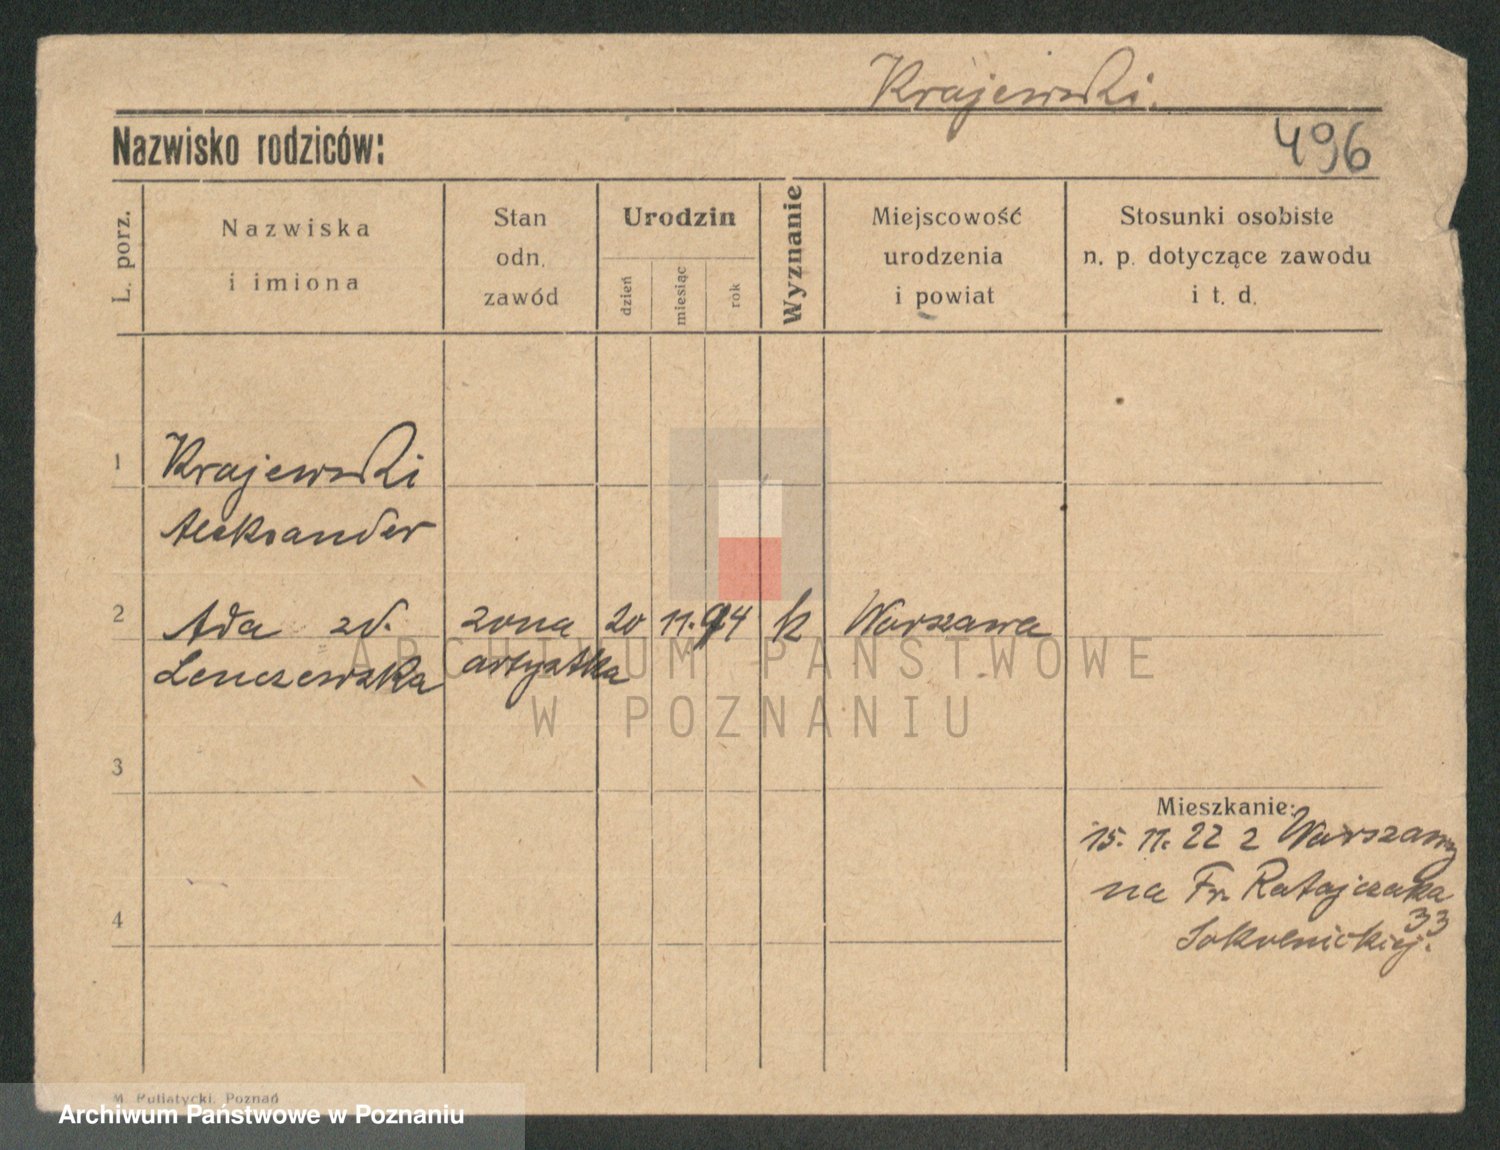 Krajewski.
Nazwisko rodziców:
496
L. porz.
Nazwiska
i imiona
Stan
odn.
zawód
Urodzin
dzień
miesiąc
rok
Wyznanie
Miejscowość
urodzenia
i powiat
Stosunki osobiste
n. p. dotyczące zawodu
i t. d.
1
Krajewski
Aleksander
2
Ada zd.
Lenczewska
żona
artystka
20
11.
94
k
Warszawa
ARCHIWUM PAŃSTWOWE
W POZNANIU
3
Mieszkanie:
15. 11. 22 z Warszawy
na Fr. Ratajczaka
33
Sokolnickiej.
4
M. Putiatycki, Poznań
Archiwum Państwowe w Poznaniu